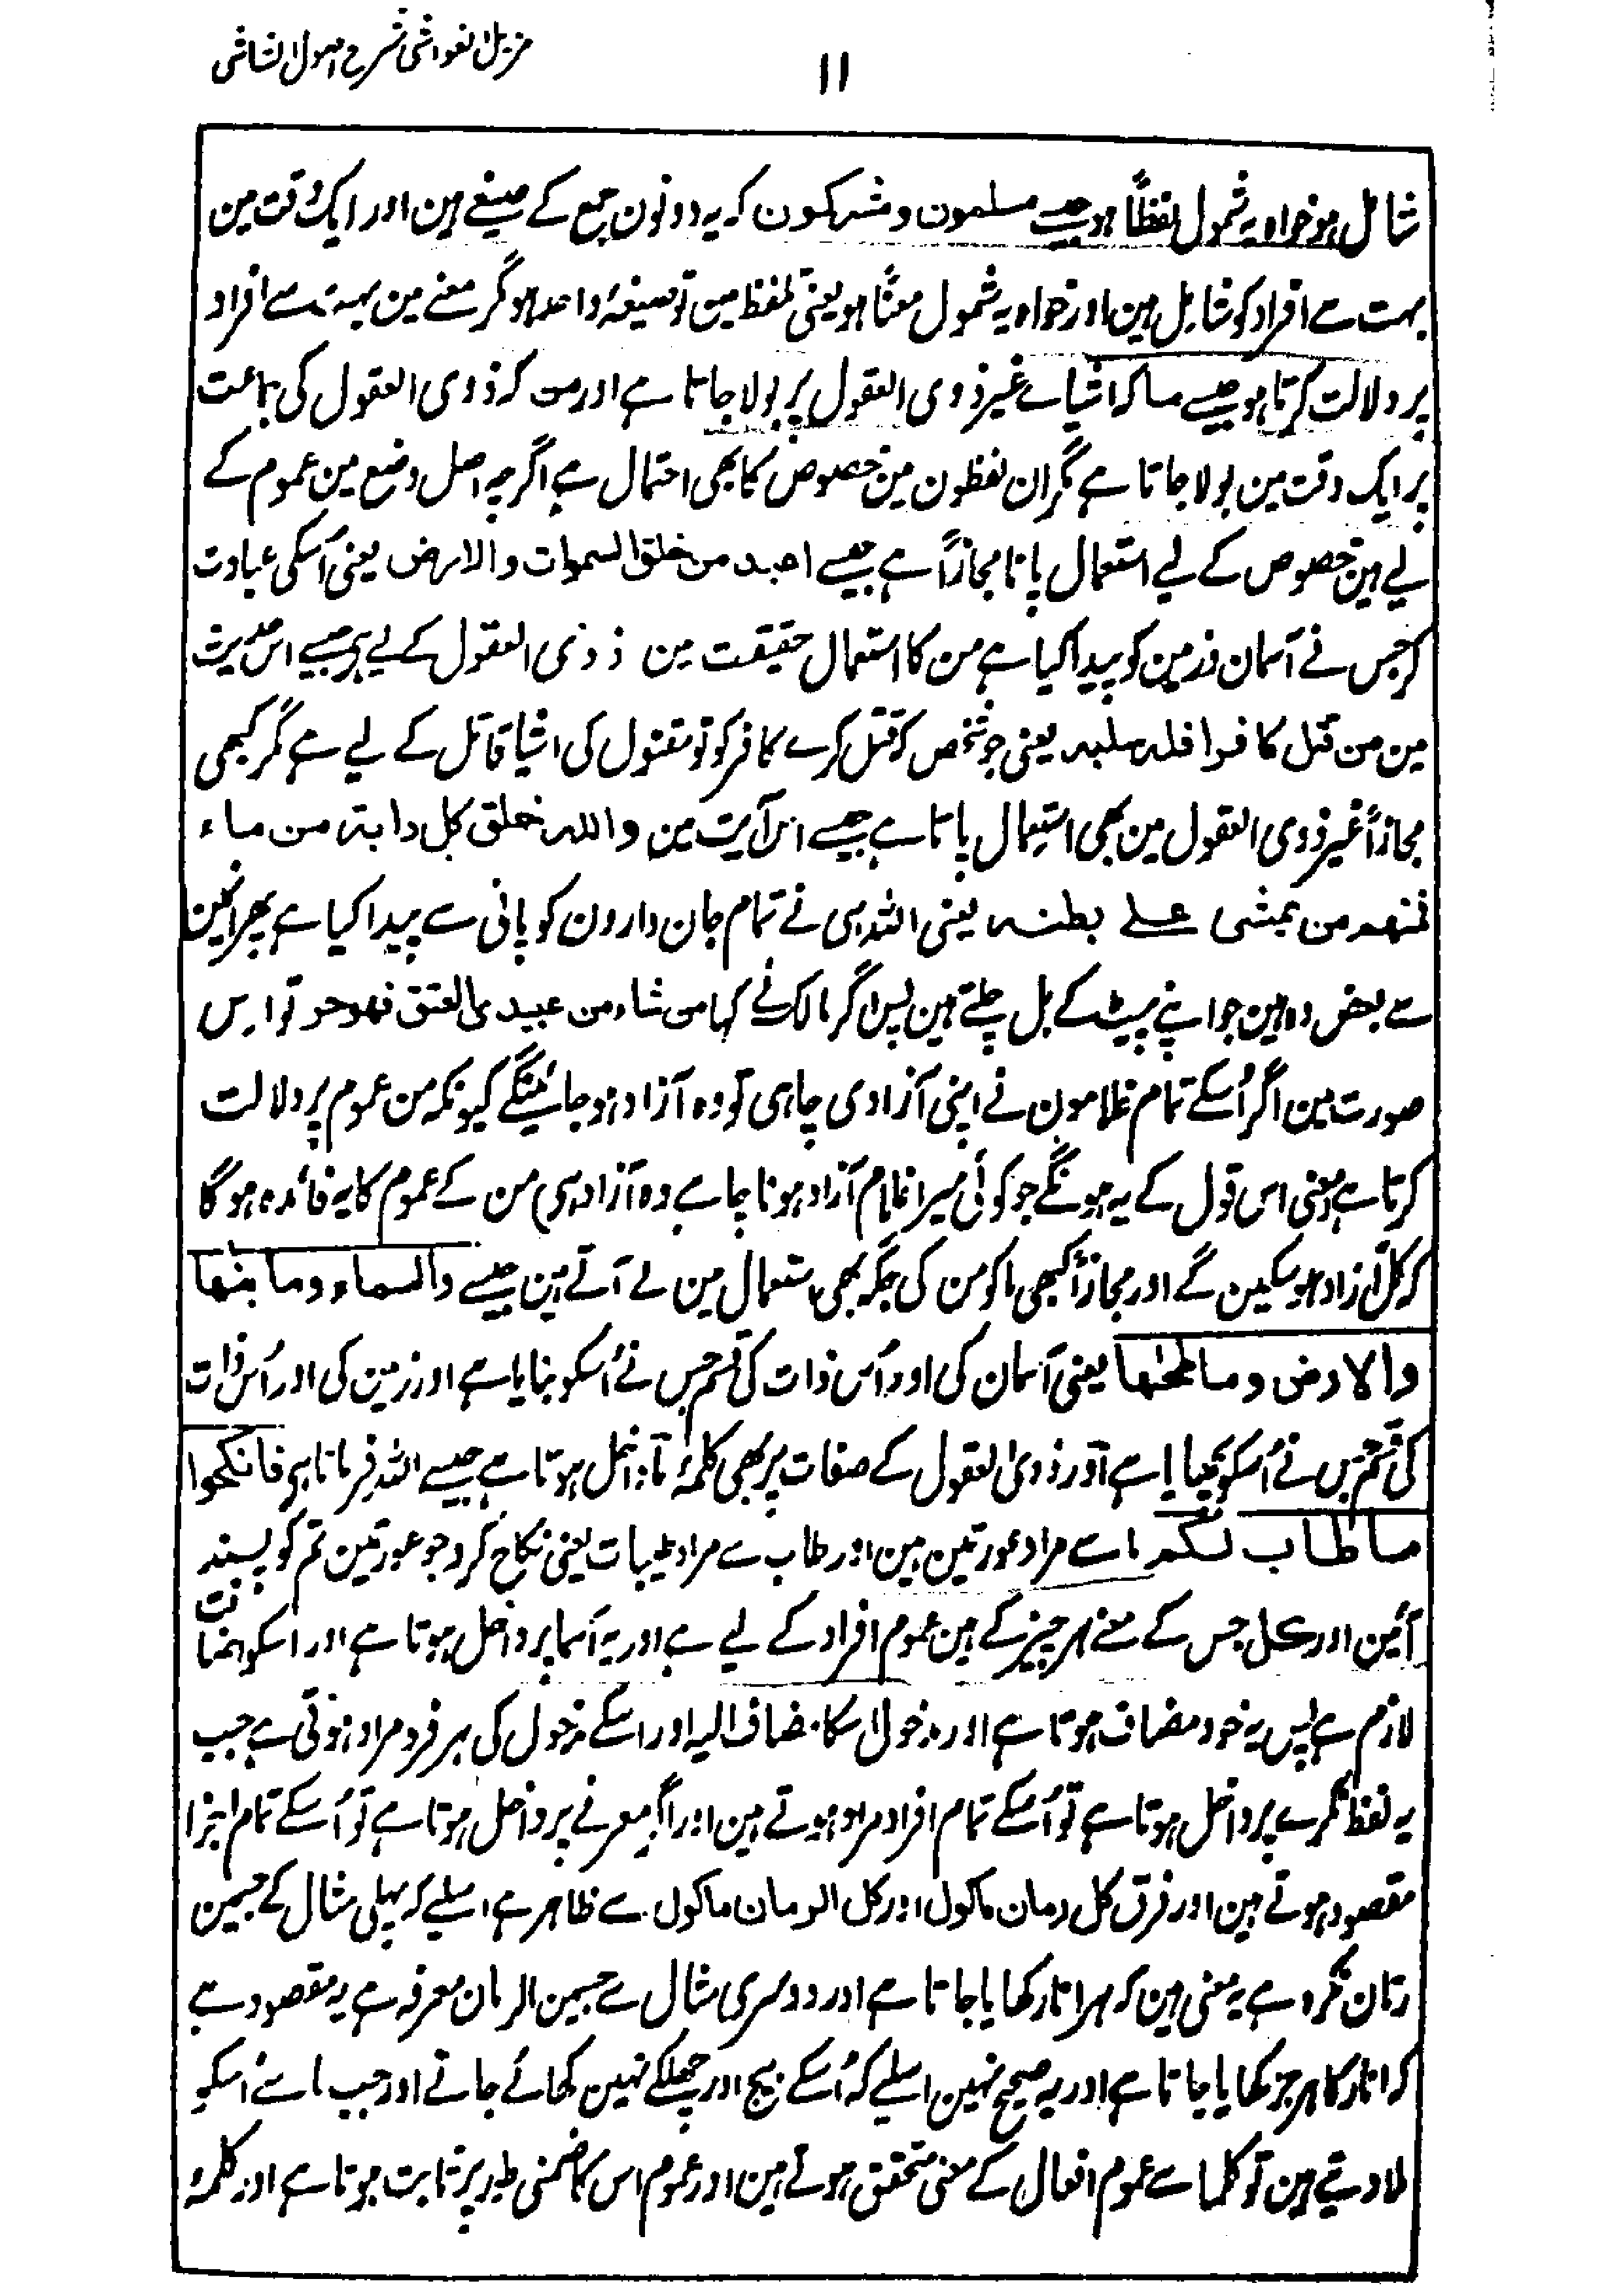 مزیل الغواشی شرح اصول الشاشی
۱۱
شامل ہو خواہ یہ شمول لفظاً ہو جیسے مسلمون و مشرکون کہ یہ دونون جمع کے صیغے ہین اور ایک وقت مین
بہت سے افراد کو شامل ہین اور خواہ یہ شمول معنًا ہو یعنی تلفظ مین تو صیغۂ واحد ہو گر معنے مین بہت سے افراد
پر دلالت کرتا ہو جیسے ما کہ اشیاے غیر ذوی العقول پر بولا جاتا ہے اور من کہ ذوی العقول کی جماعت
پر ایک وقت مین بولا جاتا ہے مگر ان لفظون مین خصوص کا بھی احتمال ہے اگرچہ اصل وضع مین عموم کے
لیے ہین خصوص کے لیے استعمال پانا مجازاً ہے جیسے اعبد من خلق السموات والارض یعنی اُسکی عبادت
کر جس نے آسمان و زمین کو پیدا کیا ہے من کا استعمال حقیقت مین ذوی العقول کے لیے ہی جیسے اس حدیث
مین من قتل کافرا فلہ سلبہ یعنی جو شخص کو قتل کرے کافر کو تو مقتول کی اشیا قاتل کے لیے ہے مگر کبھی
مجازاً غیر ذوی العقول مین بھی استعمال پاتا ہے جیسے اس آیت مین واللہ خلق کل دابۃ من ماء
فمنھم من یمشی علے بطنہ یعنی اللہ ہی نے تمام جان دارون کو پانی سے پیدا کیا ہے پھر انمین
سے بعض وہ ہین جو اپنے پیٹ کے بل چلتے ہین پس اگر مالک نے کہا من شاء من عبیدی العتق فھو حر تو اس
صورت مین اگر اُسکے تمام غلامون نے اپنی آزادی چاہی تو وہ آزاد ہو جائینگے کیونکہ من عموم پر دلالت
کرتا ہے معنی اس قول کے یہ ہونگے جو کوئی میرا غلام آزاد ہونا چاہے وہ آزاد ہی من کے عموم کا یہ فائدہ ہو گا
کہ کل آزاد ہو سکین گے اور مجازاً کبھی ما کو من کی جگہ بھی استعمال مین لے آتے ہین جیسے والسماء وما بنٰھا
والارض وما طحٰھا یعنی آسمان کی اور اُس ذات کی قسم جس نے اُسکو بنایا ہے اور زمین کی اور اُس ذات
کی قسم جس نے اُسکو بچھایا ہے اور ذوی العقول کے صفات پر بھی کلمۂ ما داخل ہوتا ہے جیسے اللہ فرماتا ہی فانکحوا
ما طاب لکم ما سے مراد عورتین ہین اور طاب سے مراد طیبات یعنی نکاح کرو جو عورتین تم کو پسند
آئین اور کل جس کے معنے ہر چیز کے ہین عموم افراد کے لیے ہے اور یہ اسما پر داخل ہوتا ہے اور اسکو اضافت
لازم ہے پس یہ خود مضاف ہوتا ہے اور مدخول اسکا مضاف الیہ اور اسکے مدخول کی ہر فرد مراد ہوتی ہے جب
یہ لفظ نکرے پر داخل ہوتا ہے تو اُسکے تمام افراد مراد ہوتے ہین اور اگر معرفے پر داخل ہوتا ہے تو اُسکے تمام اجزا
مقصود ہوتے ہین اور فرق کل رمان ماکول اور کل الرمان ماکول سے ظاہر ہے اسلیے کہ پہلی مثال کے جسمین
رمان نکرہ ہے یہ معنی ہین کہ ہر انار کھایا جاتا ہے اور دوسری مثال سے جسمین الرمان معرفہ ہے یہ مقصود ہے
کہ انار کا ہر جز کھایا جاتا ہے اور یہ صحیح نہین اسلیے کہ اُسکے بیج اور چھلکے نہین کھائے جاتے اور جب ما سے اُسکو
ملا دیتے ہین تو کلما سے عموم افعال کے معنی متحقق ہوتے ہین اور عموم اس کا ضمنی طور پر ثابت ہوتا ہے اور کلمۂ